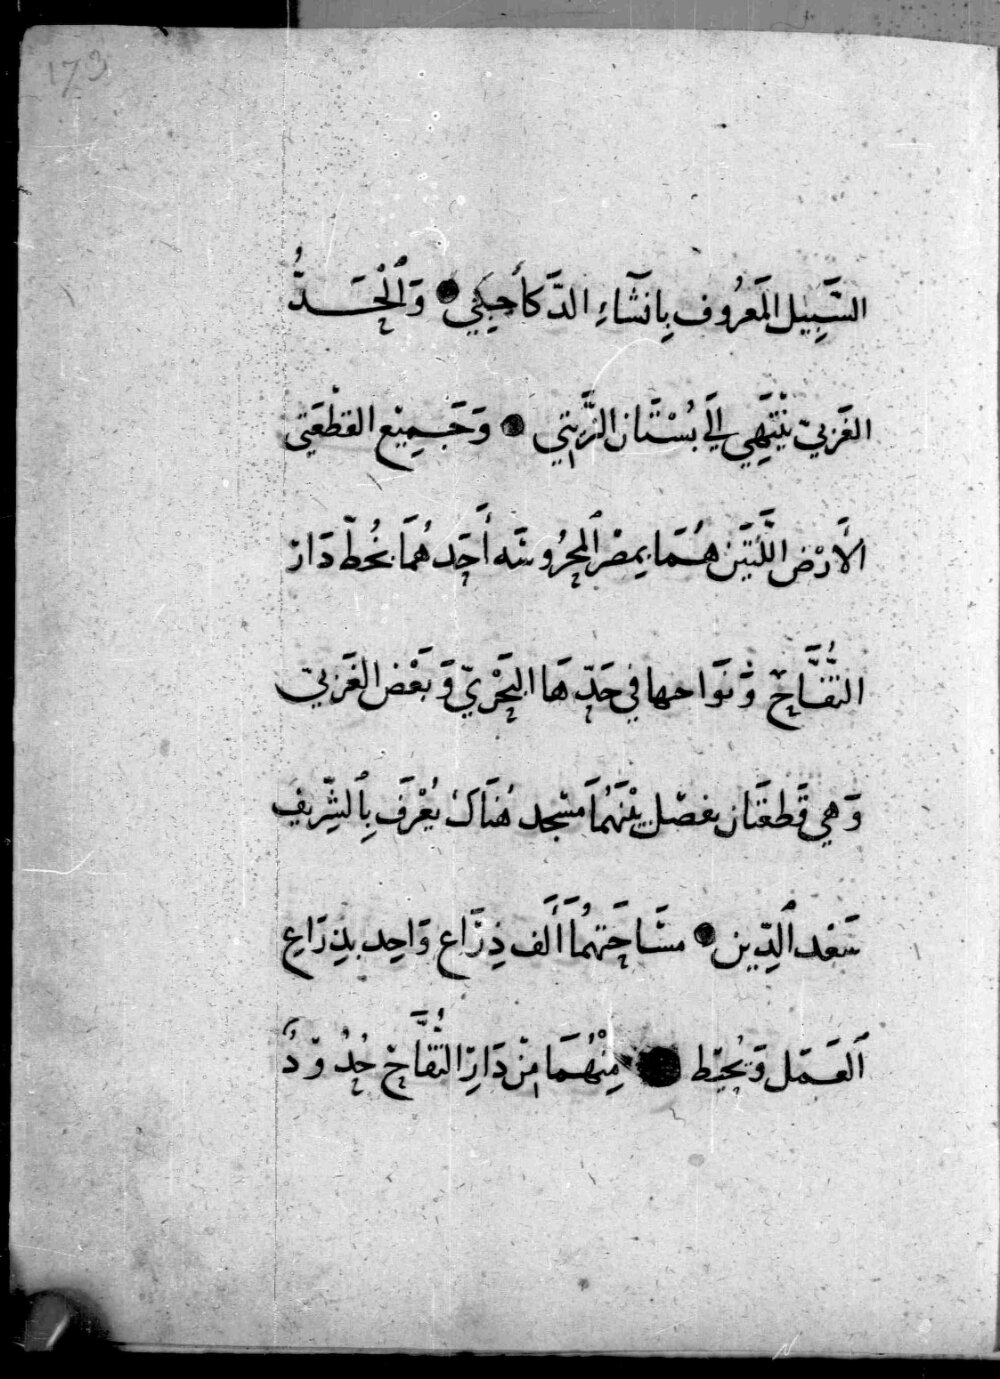 173
السَّبِيل المَعرُوف بِانشَاءِ الدَّكاحِيني وَالْحَدُّ
الغَربيّ يَنْتَهِي الَى بُسْتَان الزَّيتي وَجَمِيْع القطْعَتي
الأَرْض اللَّتَيْن هُمَا بمِصْر المحرُوسَه أَحَدهُمَا بخُطّ دَار
التُّفَّاحْ وَنَوَاحها في حَدِّهَا البَحْرِيّ وَبَعْض الغَربيّ
وَهي قَطعَتَان يفصْل بَيْنَهُمَا مَسْجد هُنَاكَ يُعْرَفُ بِالشّرِيفِ
سَعْد الدِّين مسَّاحَتهُمَا أَلف ذِرَاع وَاحِد بذِرَاع
العَمَل وَيُحِيْط مِنْهُمَا مِنْ دَارِ التُّفَّاحْ حُدُوْدُ